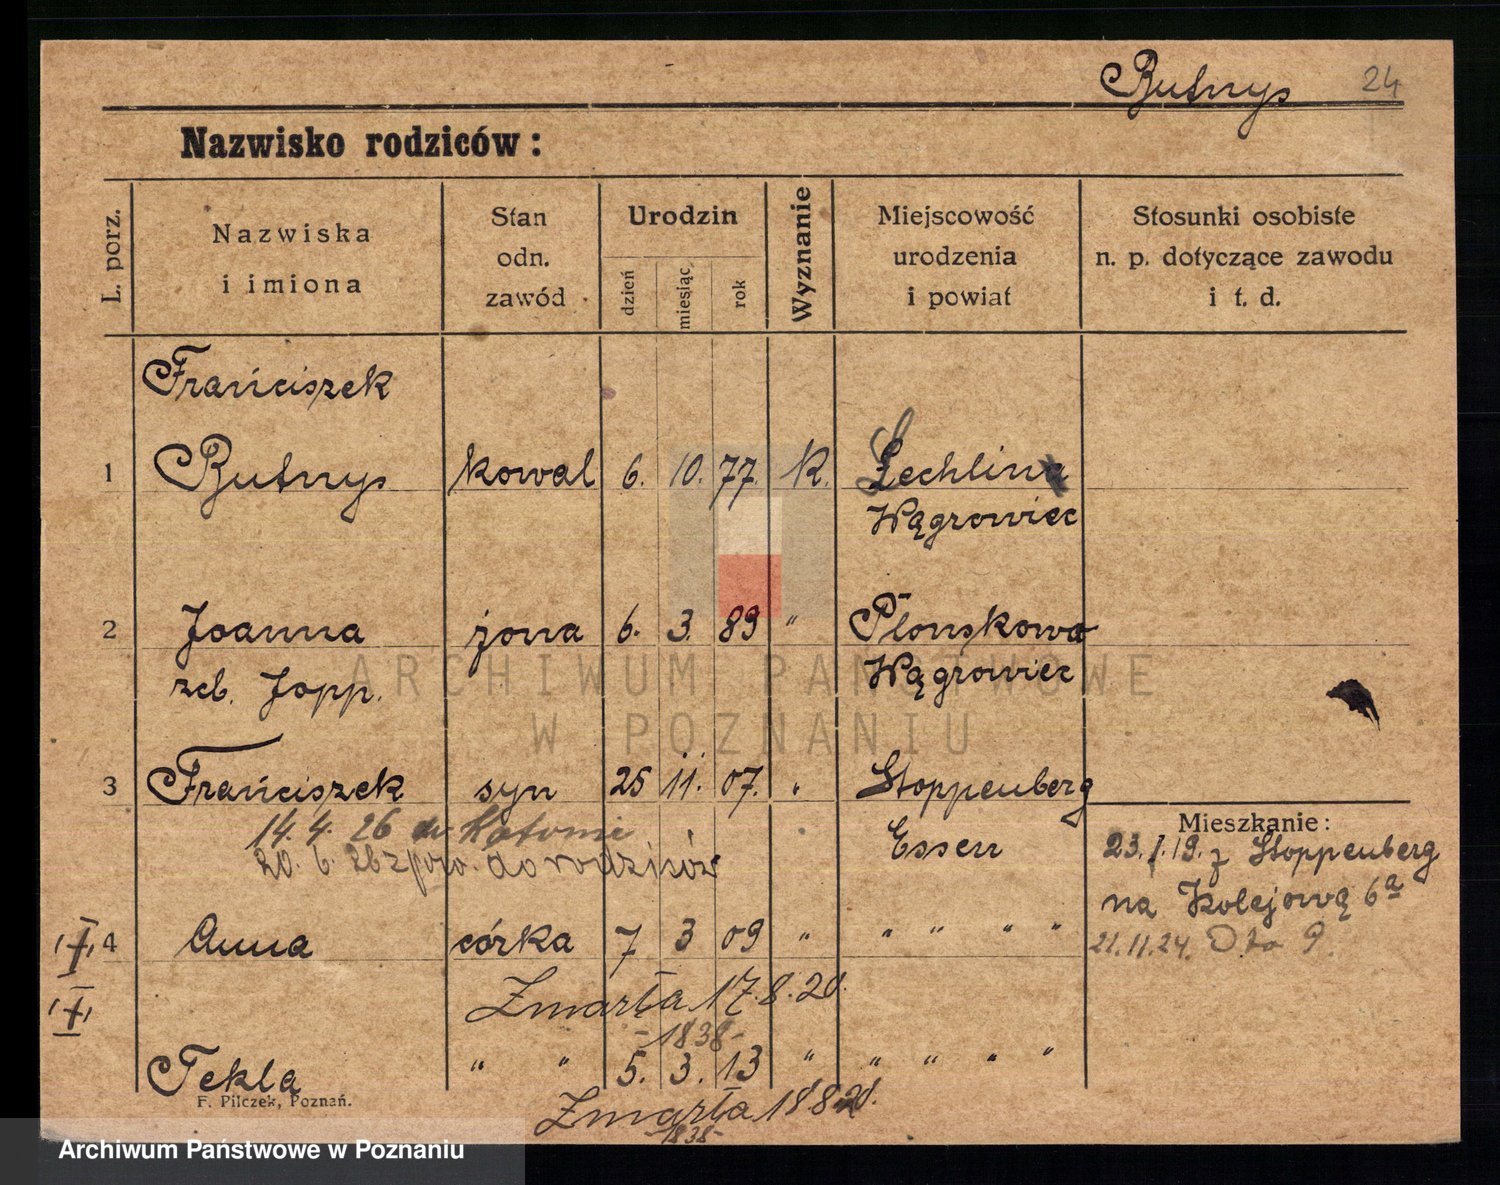 Butnys 24
Nazwisko rodziców:
L. porz.
Nazwiska
i imiona
Stan
odn.
zawód
Urodzin
dzień
miesiąc
rok
Wyznanie
Miejscowość
urodzenia
i powiat
Stosunki osobiste
n. p. dotyczące zawodu
i t. d.
Franciszek
1 Butnys kowal 6. 10. 77. K. Lechlin
Wągrowiec
2 Joanna żona 6. 3. 89 " Płonskowo
zcb. Jopp. Wągrowiec
ARCHIWUM PAŃSTWOWE
W POZNANIU
3 Franciszek syn 25 11. 07. " Stoppenberg
14. 4. 26 do
Essen
20. 6. 26 z pow. do rodziców
Mieszkanie:
23. I. 19. z Stoppenberg
na Kolejową 6a
21. 11. 24. Dto 9.
4 Anna córka 7 3 09 " " " " "
Zmarła 17. 8. 20.
-1838-
Tekla " " 5. 3. 13 " " " " "
F. Pilczek, Poznań.
Zmarła 18 8 20.
-1838-
Archiwum Państwowe w Poznaniu